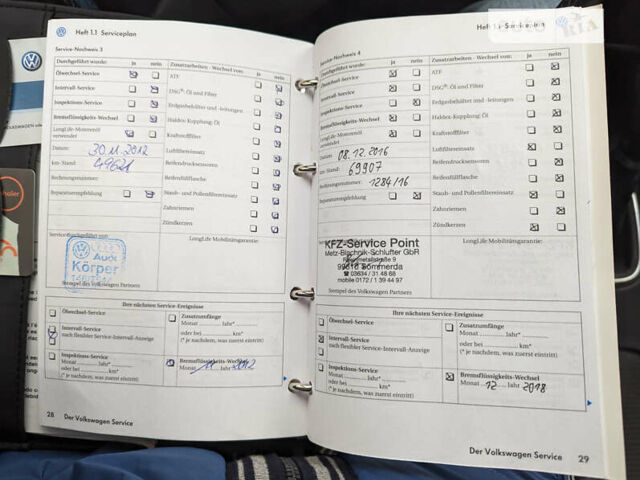 Heft 1.1 Serviceplan
Service-Nachweis 3
Durchgeführt wurde: ja nein
Ölwechsel-Service
Intervall-Service
Inspektions-Service
Bremsflüssigkeits-Wechsel
LongLife-Motorenöl
verwendet
Datum: 30.11.2012
km-Stand:
Rechnungsnummer:
Reparaturempfehlung
Service durchgeführt von:
Audi
Körper
Stempel des Volkswagen Partners
Zusatzarbeiten - Wechsel von: ja nein
ATF
DSG®: Öl und Filter
Erdgasbehälter und -leitungen
Haldex-Kupplung: Öl
Kraftstofffilter
Luftfiltereinsatz
Reifendrucksensoren
Reifenfüllflasche
Staub- und Pollenfiltereinsatz
Zahnriemen
Zündkerzen
LongLife Mobilitätsgarantie:
Ihre nächsten Service-Ereignisse
Ölwechsel-Service
Intervall-Service
nach flexibler Service-Intervall-Anzeige
Inspektions-Service
Monat Jahr*
oder bei km*
(* je nachdem, was zuerst eintritt)
Zusatzumfänge
Monat Jahr*
oder bei km*
(* je nachdem, was zuerst eintritt)
Bremsflüssigkeits-Wechsel
Monat 11 Jahr 2012
28
Der Volkswagen Service
Heft 1.1 Serviceplan
Service-Nachweis 4
Durchgeführt wurde: ja nein
Ölwechsel-Service
Intervall-Service
Inspektions-Service
Bremsflüssigkeits-Wechsel
LongLife-Motorenöl
verwendet
Datum: 08.12.2016
km-Stand: 69907
Rechnungsnummer: 1284/16
Reparaturempfehlung
KFZ-Service Point
Metz-Blachnik-Schlufter GbR
Rheinmetallstraße 9
99610 Sömmerda
☎ 03634 / 31 48 68
mobile 0172 / 1 39 44 97
Stempel des Volkswagen Partners
Zusatzarbeiten - Wechsel von: ja nein
ATF
DSG®: Öl und Filter
Erdgasbehälter und -leitungen
Haldex-Kupplung: Öl
Kraftstofffilter
Luftfiltereinsatz
Reifendrucksensoren
Reifenfüllflasche
Staub- und Pollenfiltereinsatz
Zahnriemen
Zündkerzen
LongLife Mobilitätsgarantie:
Ihre nächsten Service-Ereignisse
Ölwechsel-Service
Intervall-Service
nach flexibler Service-Intervall-Anzeige
Inspektions-Service
Monat Jahr*
oder bei km*
(* je nachdem, was zuerst eintritt)
Zusatzumfänge
Monat Jahr*
oder bei km*
(* je nachdem, was zuerst eintritt)
Bremsflüssigkeits-Wechsel
Monat 12 Jahr 2018
Der Volkswagen Service 29